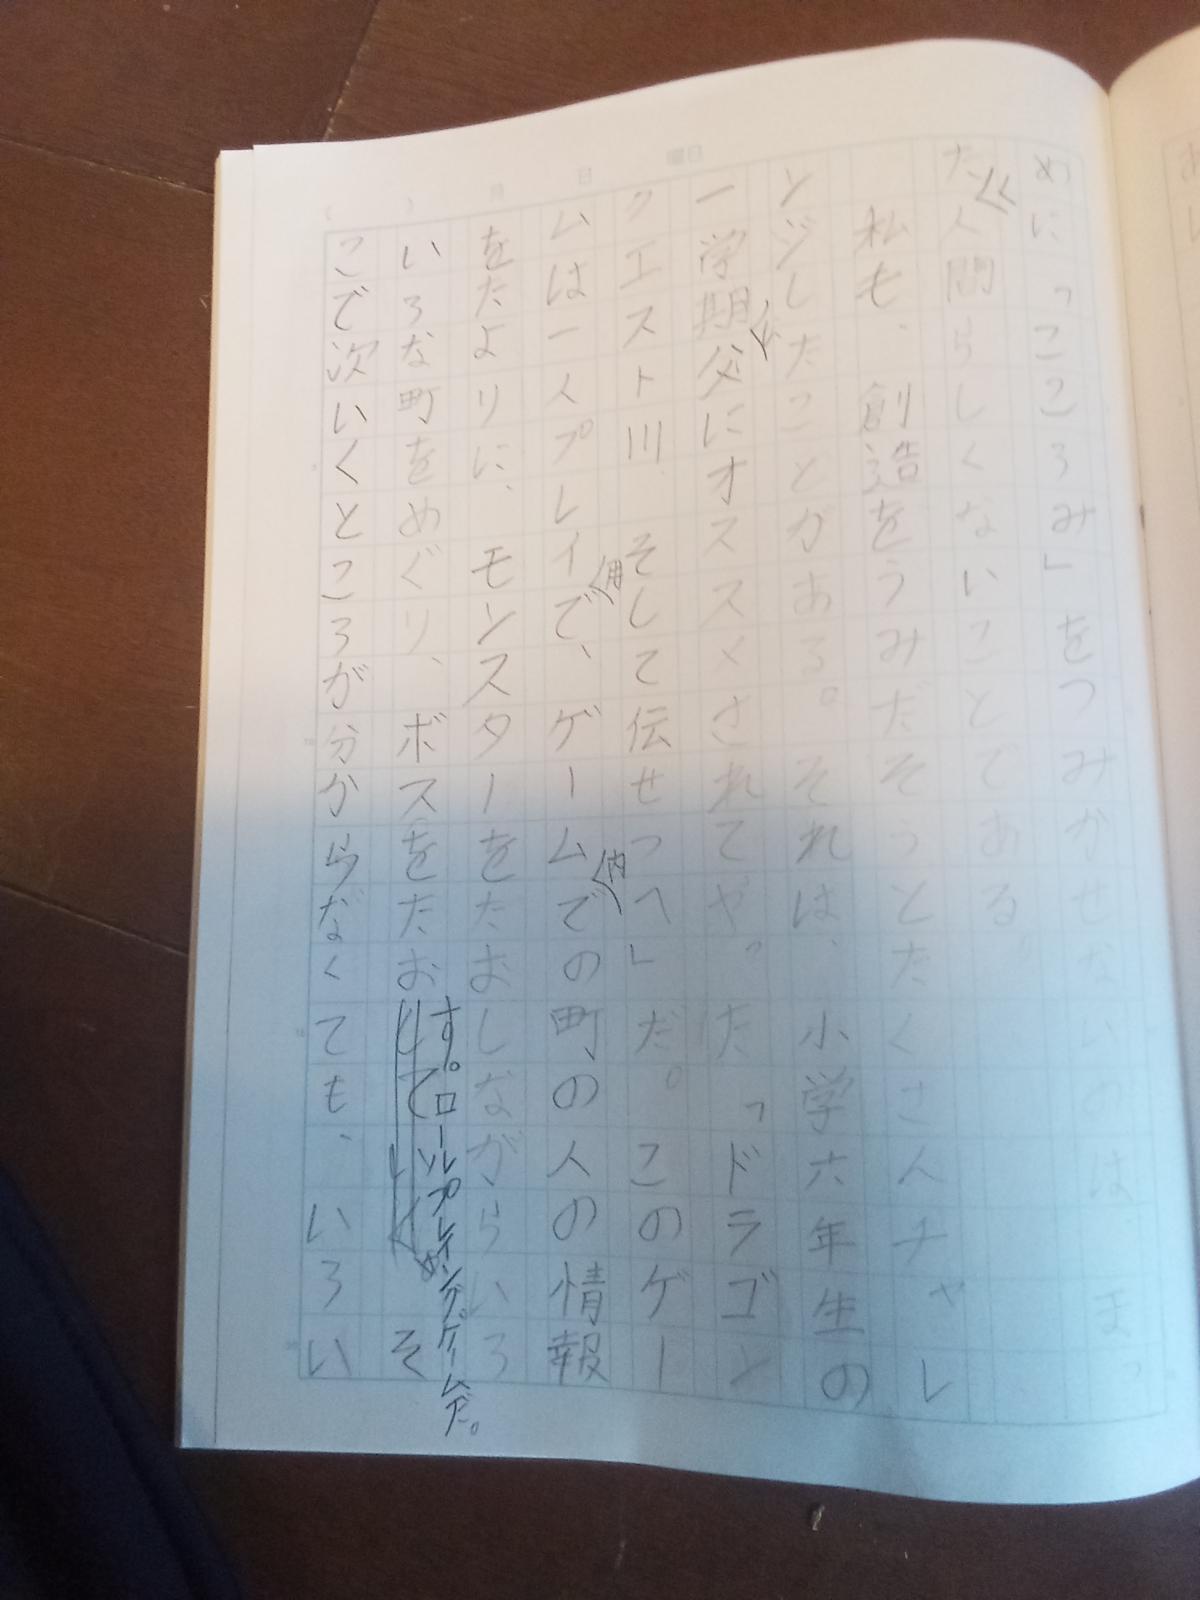 めに「こころみ」をつみかせないのは、まっ
たく人間らしくないことである。
私も、創造をうみだそうとたくさんチャレ
ンジしたことがある。それは、小学六年生の
一学期、父にオススメされてやった「ドラゴン
クエストIII そして伝せつへ」だ。このゲー
ムは一人プレイ用で、ゲーム内での町の人の情報
をたよりに、モンスターをたおしながらいろ
いろな町をめぐり、ボスをたおす。ロールプレイングゲームだ。そ
こで次いくところが分からなくても、いろい
月 日 曜日